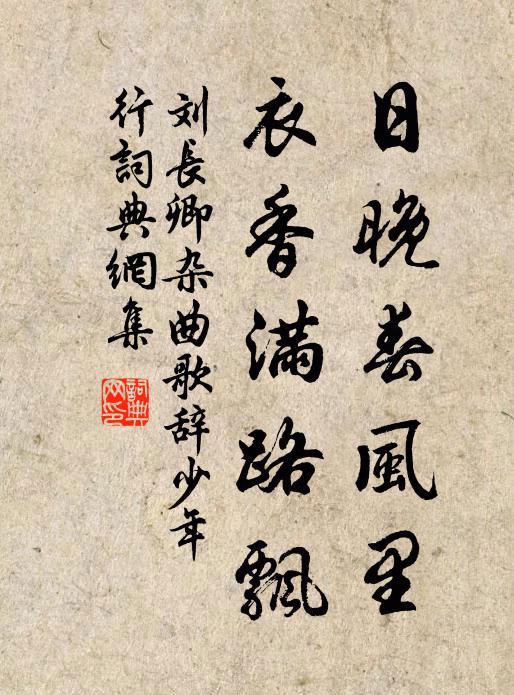 日晚春風里
衣香滿路飄
刘長卿杂曲歌辞少年
行詞典網集
詞典
网印